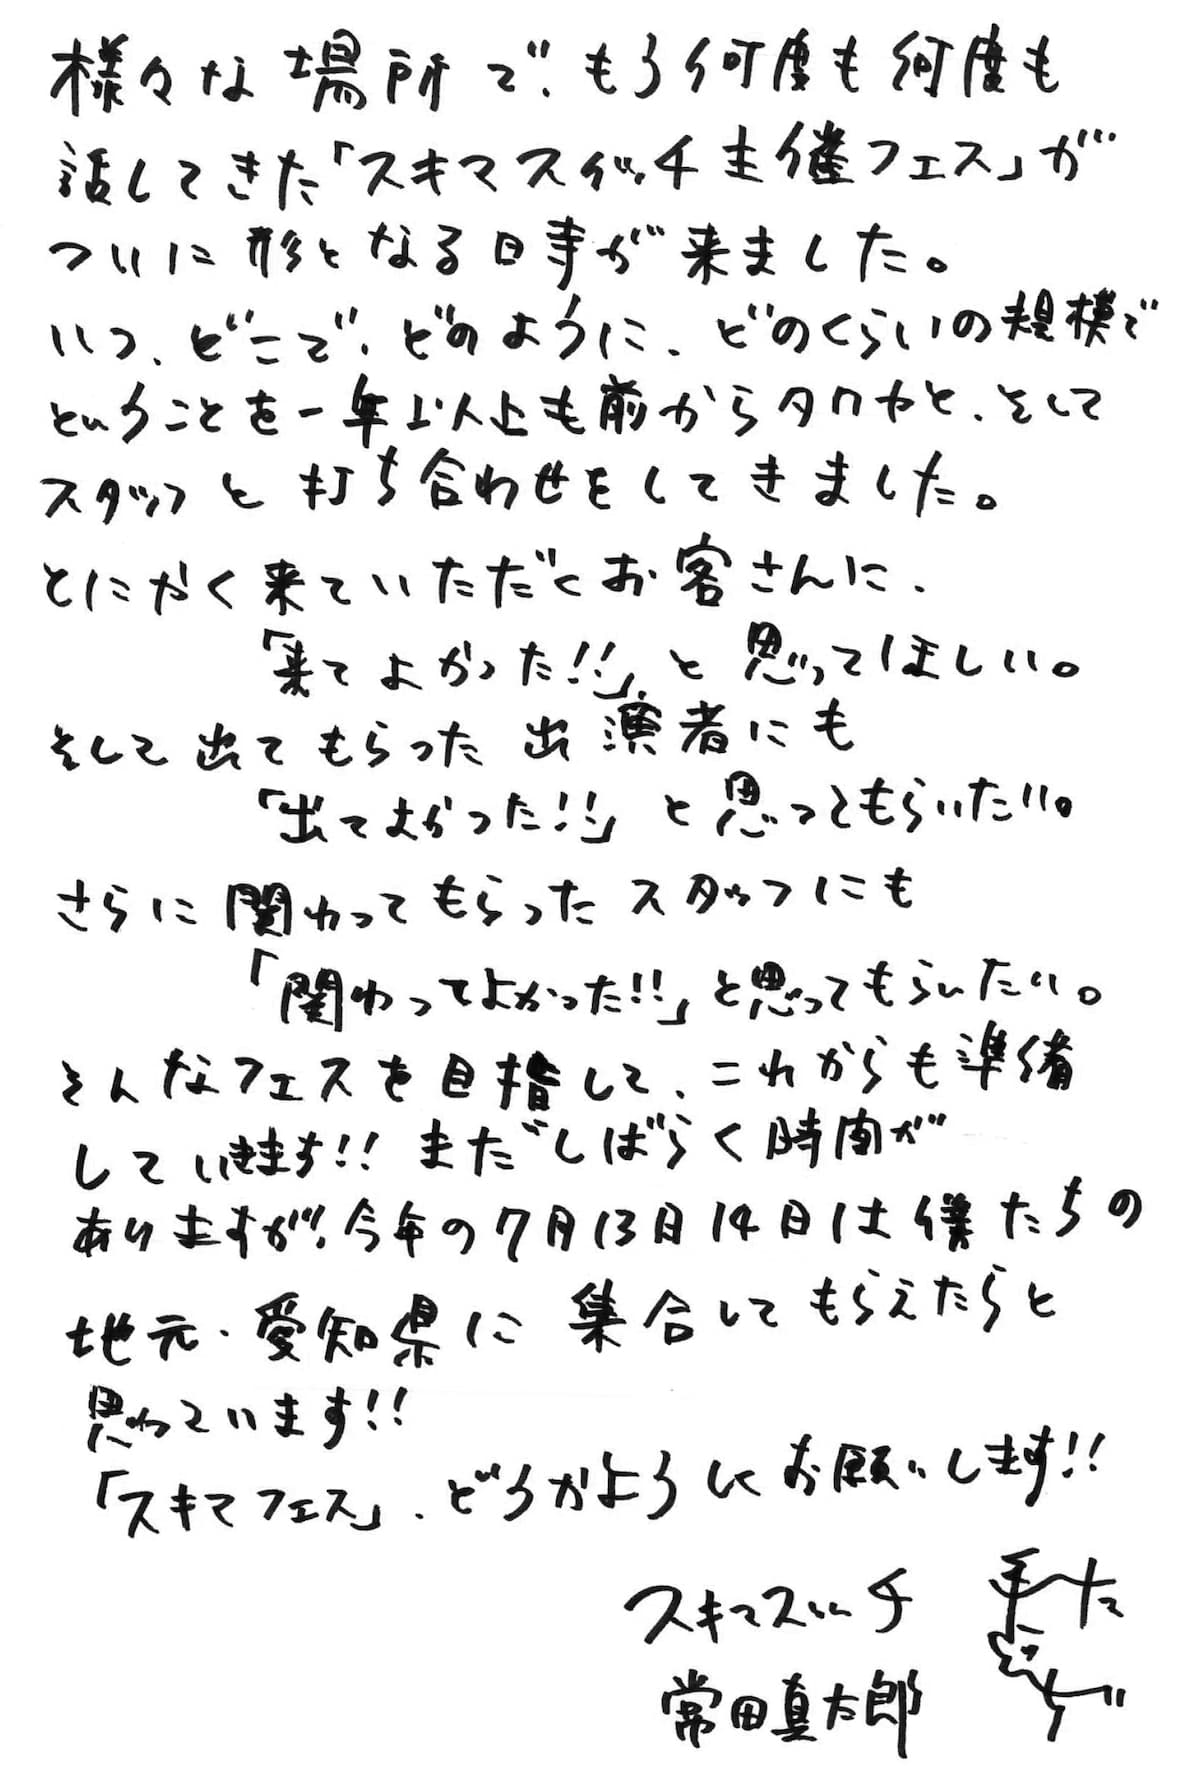 様々な場所で、もう何度も何度も
話してきた「スキマスイッチ主催フェス」が
ついに形となる日時が来ました。
いつ、どこで、どのように、どのくらいの規模で
ということを一年以上も前からタクヤと、そして
スタッフと打ち合わせをしてきました。
とにかく来ていただくお客さんに、
「来てよかった!!」と思ってほしい。
そして出てもらった出演者にも
「出てよかった!!」と思ってもらいたい。
さらに関わってもらったスタッフにも
「関わってよかった!!」と思ってもらいたい。
そんなフェスを目指して、これからも準備
していきます!!まだしばらく時間が
ありますが、今年の7月13日14日は僕たちの
地元・愛知県に集合してもらえたらと
思っています!!
「スキマフェス」、どうかよろしくお願いします!!
スキマスイッチ
常田真太郎